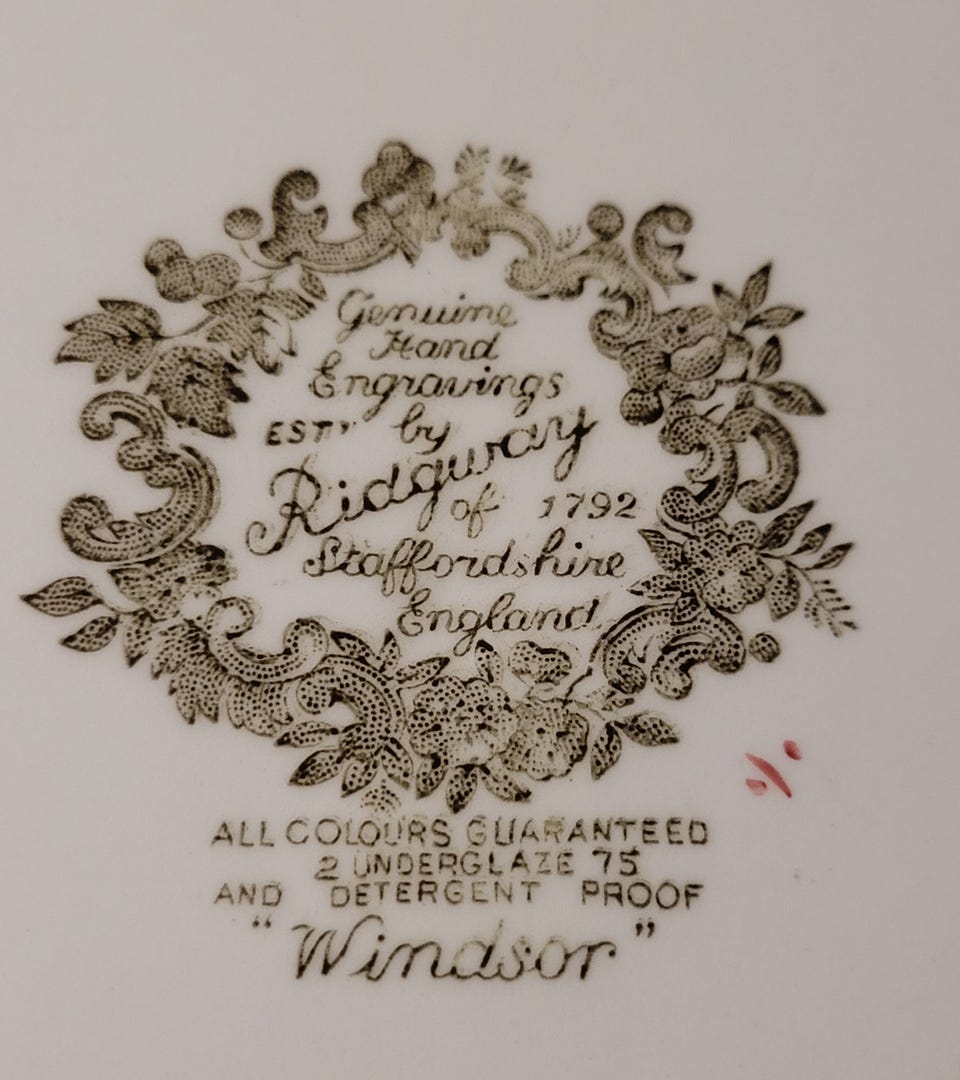 Genuine
Hand
Engravings
ESTD by
Ridgway
of 1792
Staffordshire
England
ALL COLOURS GUARANTEED
2 UNDERGLAZE 75
AND DETERGENT PROOF
"Windsor"